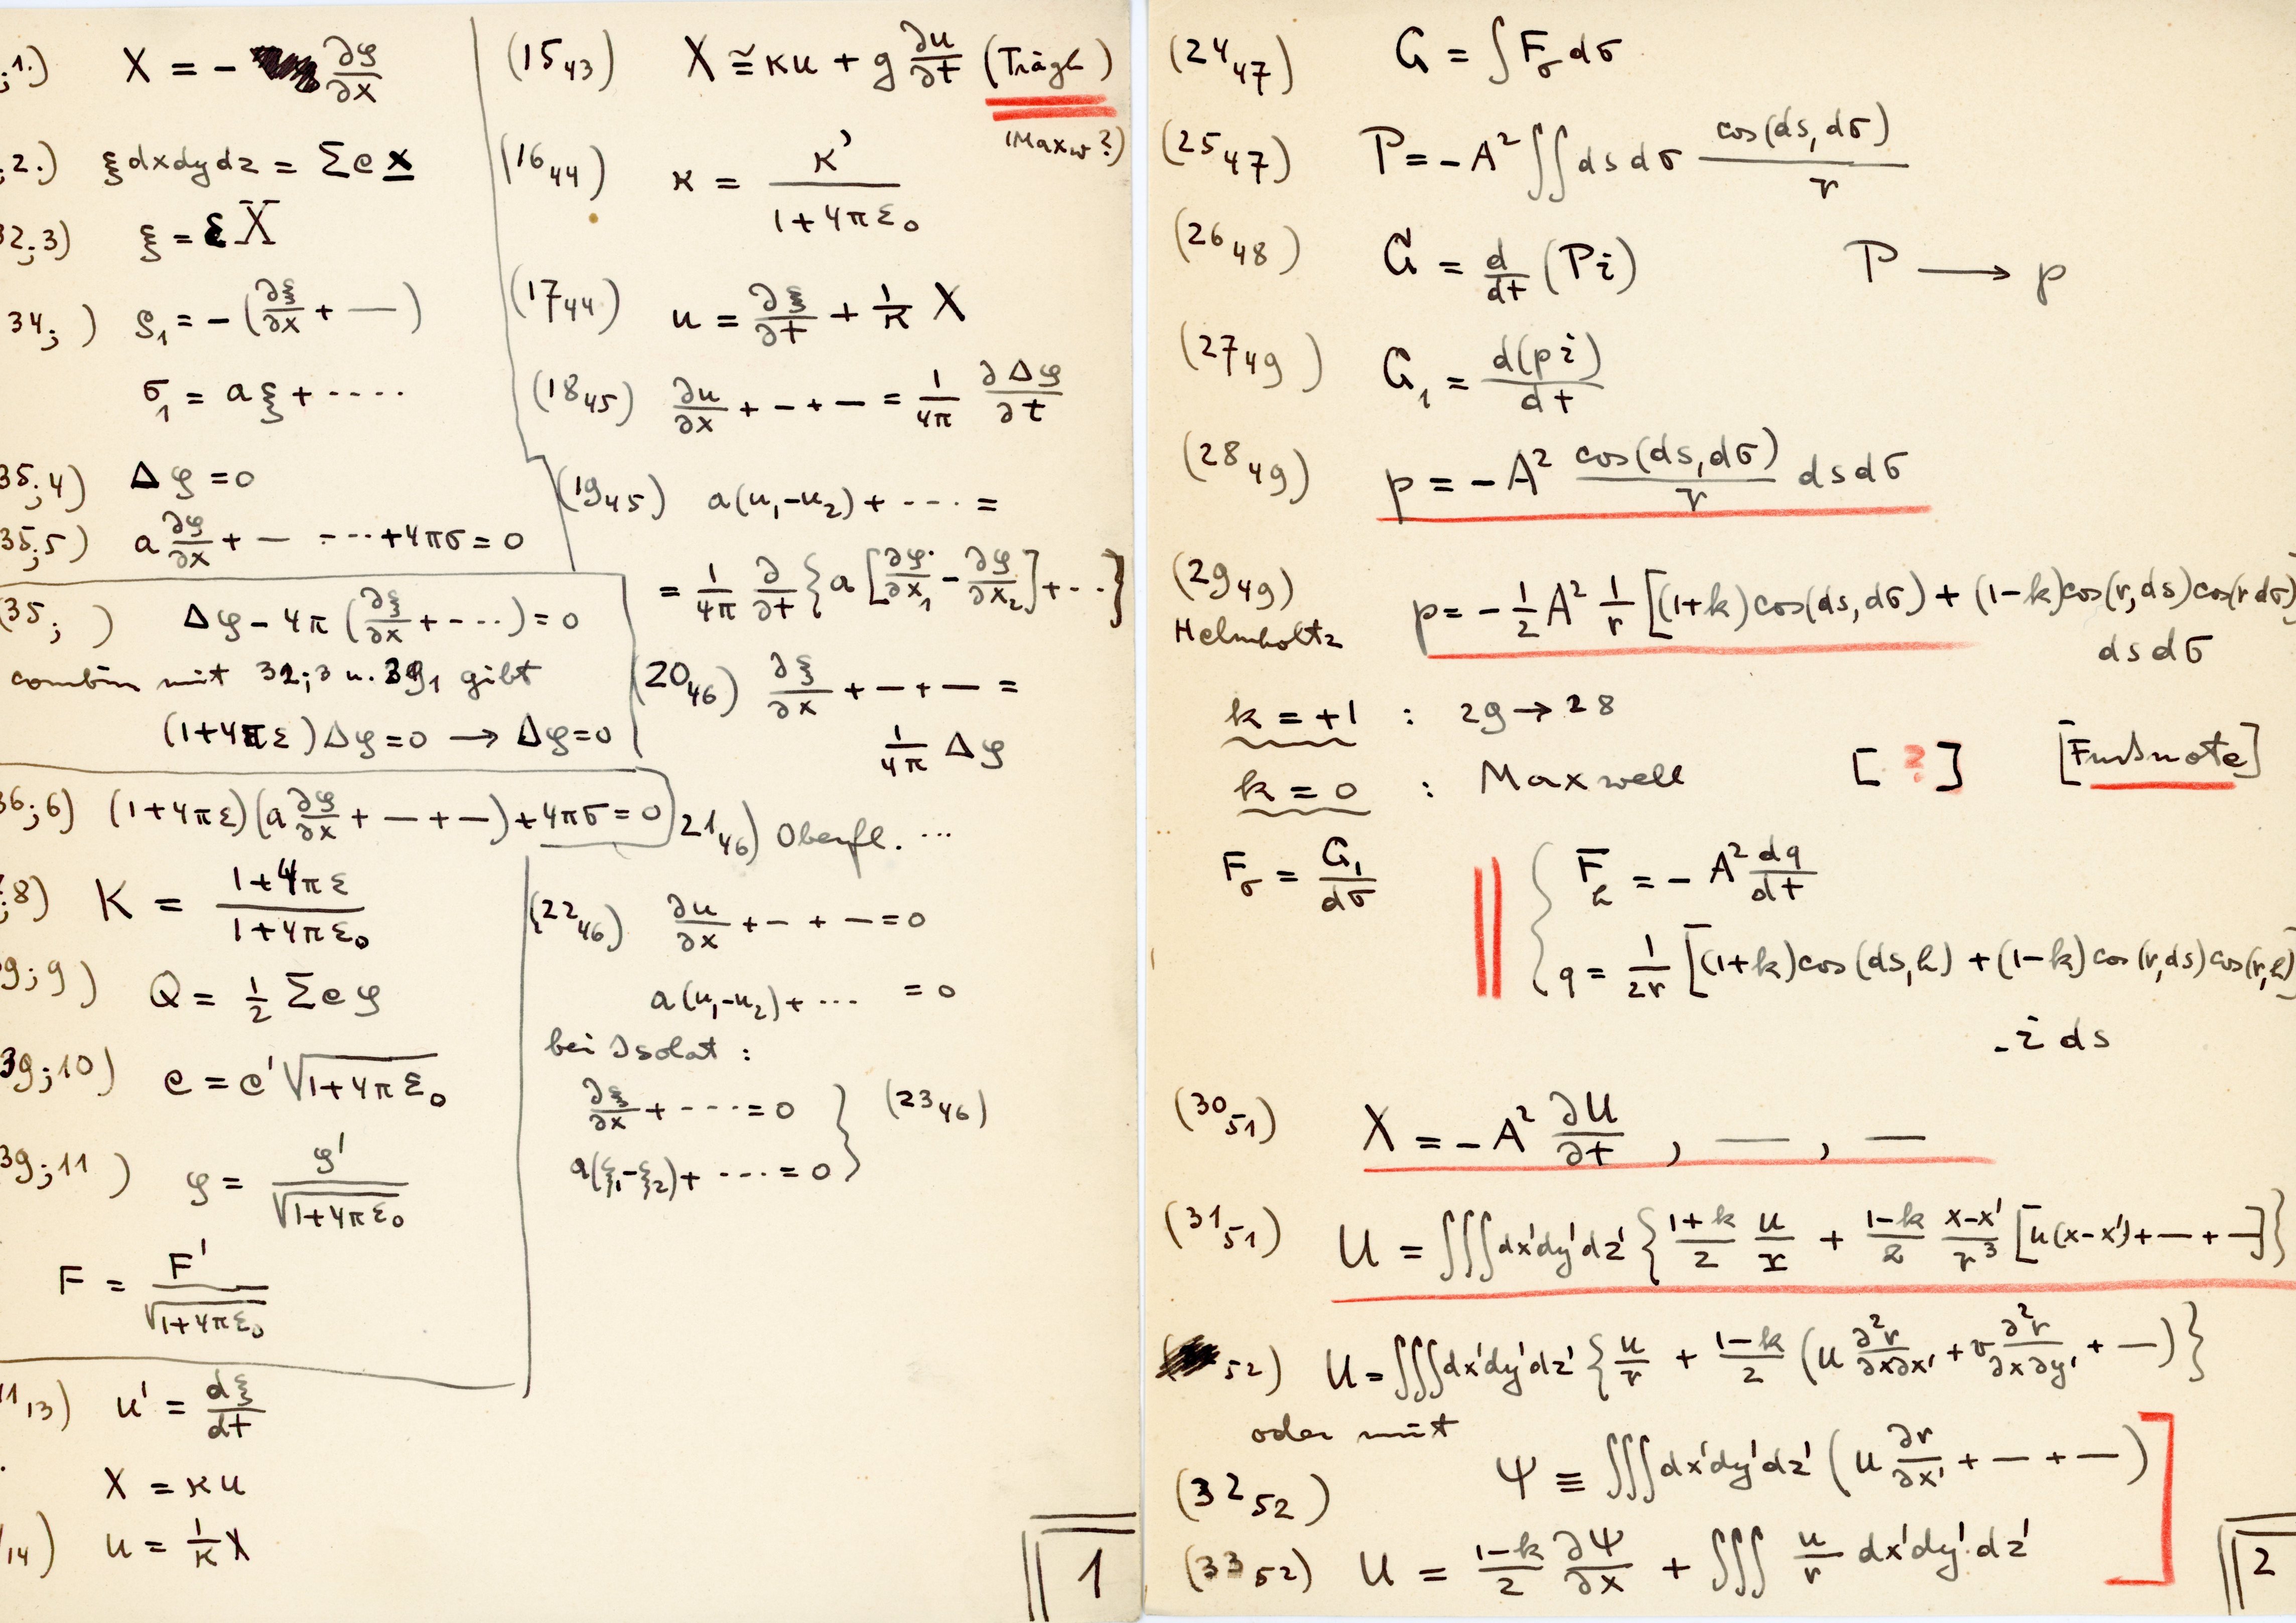 ;1.) X = - ∂φ/∂x
;2.) ξ dx dy dz = Σ e x
32;3) ξ = ε X
34; ) ρ₁ = - (∂ξ/∂x + —)
σ₁ = a ξ + ····
35;4) Δφ = 0
35;5) a ∂φ/∂x + — - ··· + 4πσ = 0
(35; ) Δφ - 4π (∂ξ/∂x + ---) = 0
combin mit 32;3 u. 39₁ gibt
(1+4πε) Δφ = 0 → Δφ = 0
36;6) (1+4πε)(a ∂φ/∂x + — + —) + 4πσ = 0
;8) K = (1+4πε)/(1+4πε₀)
9;9) Q = 1/2 Σ e φ
39;10) e = e' √(1+4πε₀)
39;11) φ = φ'/√(1+4πε₀)
F = F'/√(1+4πε₀)
13) u' = dξ/dt
X = κu
14) u = 1/κ X
(15₄₃) X ≅ κu + g ∂u/∂t (Trägh)
(Maxw?)
(16₄₄) κ = κ'/(1+4πε₀)
(17₄₄) u = ∂ξ/∂t + 1/κ X
(18₄₅) ∂u/∂x + — + — = 1/4π ∂Δφ/∂t
(19₄₅) a(u₁-u₂) + ---- =
= 1/4π ∂/∂t {a [∂φ/∂x₁ - ∂φ/∂x₂] + ··}
(20₄₆) ∂ξ/∂x + — + — =
1/4π Δφ
21₄₆) Oberfl. ···
(22₄₆) ∂u/∂x + — + — = 0
a(u₁-u₂) + ··· = 0
bei Isolat :
∂ξ/∂x + ---- = 0 } (23₄₆)
a(ξ₁-ξ₂) + ---- = 0
1
(24₄₇) G = ∫ F_σ dσ
(25₄₇) P = - A² ∫∫ ds dσ cos(ds, dσ)/r
(26₄₈) G = d/dt (P i) P → p
(27₄₉) G₁ = d(p i)/dt
(28₄₉) p = - A² cos(ds, dσ)/r ds dσ
(29₄₉) p = - 1/2 A² 1/r [(1+k) cos(ds, dσ) + (1-k) cos(r, ds) cos(r dσ)]
Helmholtz ds dσ
k = +1 : 29 → 28
k = 0 : Maxwell [?] [Fußnote]
F_σ = G₁/dσ { F_h = - A² dq/dt
q = 1/2r [(1+k) cos(ds, h) + (1-k) cos(r, ds) cos(r, h)]
· i ds
(30₅₁) X = - A² ∂U/∂t , — , —
(31₅₁) U = ∫∫∫ dx'dy'dz' { (1+k)/2 u/r + (1-k)/2 (x-x')/r³ [u(x-x') + — + —] }
52) U = ∫∫∫ dx'dy'dz' { u/r + (1-k)/2 (u ∂²r/∂x∂x' + v ∂²r/∂x∂y' + —) }
oder mit
(32₅₂) Ψ ≡ ∫∫∫ dx'dy'dz' (u ∂r/∂x' + — + —)
(33₅₂) U = (1-k)/2 ∂Ψ/∂x + ∫∫∫ u/r dx'dy'dz'
2